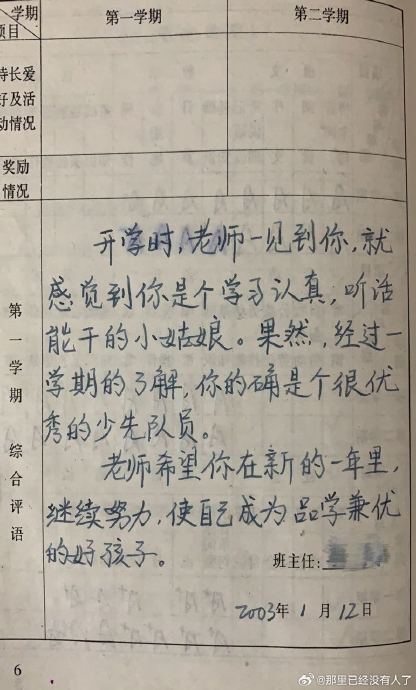 学期
项目
第一学期
第二学期
特长爱
好及活
动情况
奖励
情况
第一学期 综合评语
开学时,老师一见到你,就
感觉到你是个学习认真,听话
能干的小姑娘。果然,经过一
学期的了解,你的确是个很优
秀的少先队员。
老师希望你在新的一年里,
继续努力,使自己成为品学兼优
的好孩子。
班主任:
2003年1月12日
6
@那里已经没有人了